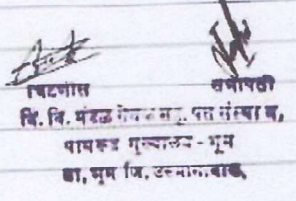 चिटणीस सभापती
वि. वि. मंडळ सेवक सह. पत संस्था म,
पाथरूड मुख्यालय - भूम
ता, भूम जि. उस्मानाबाद,